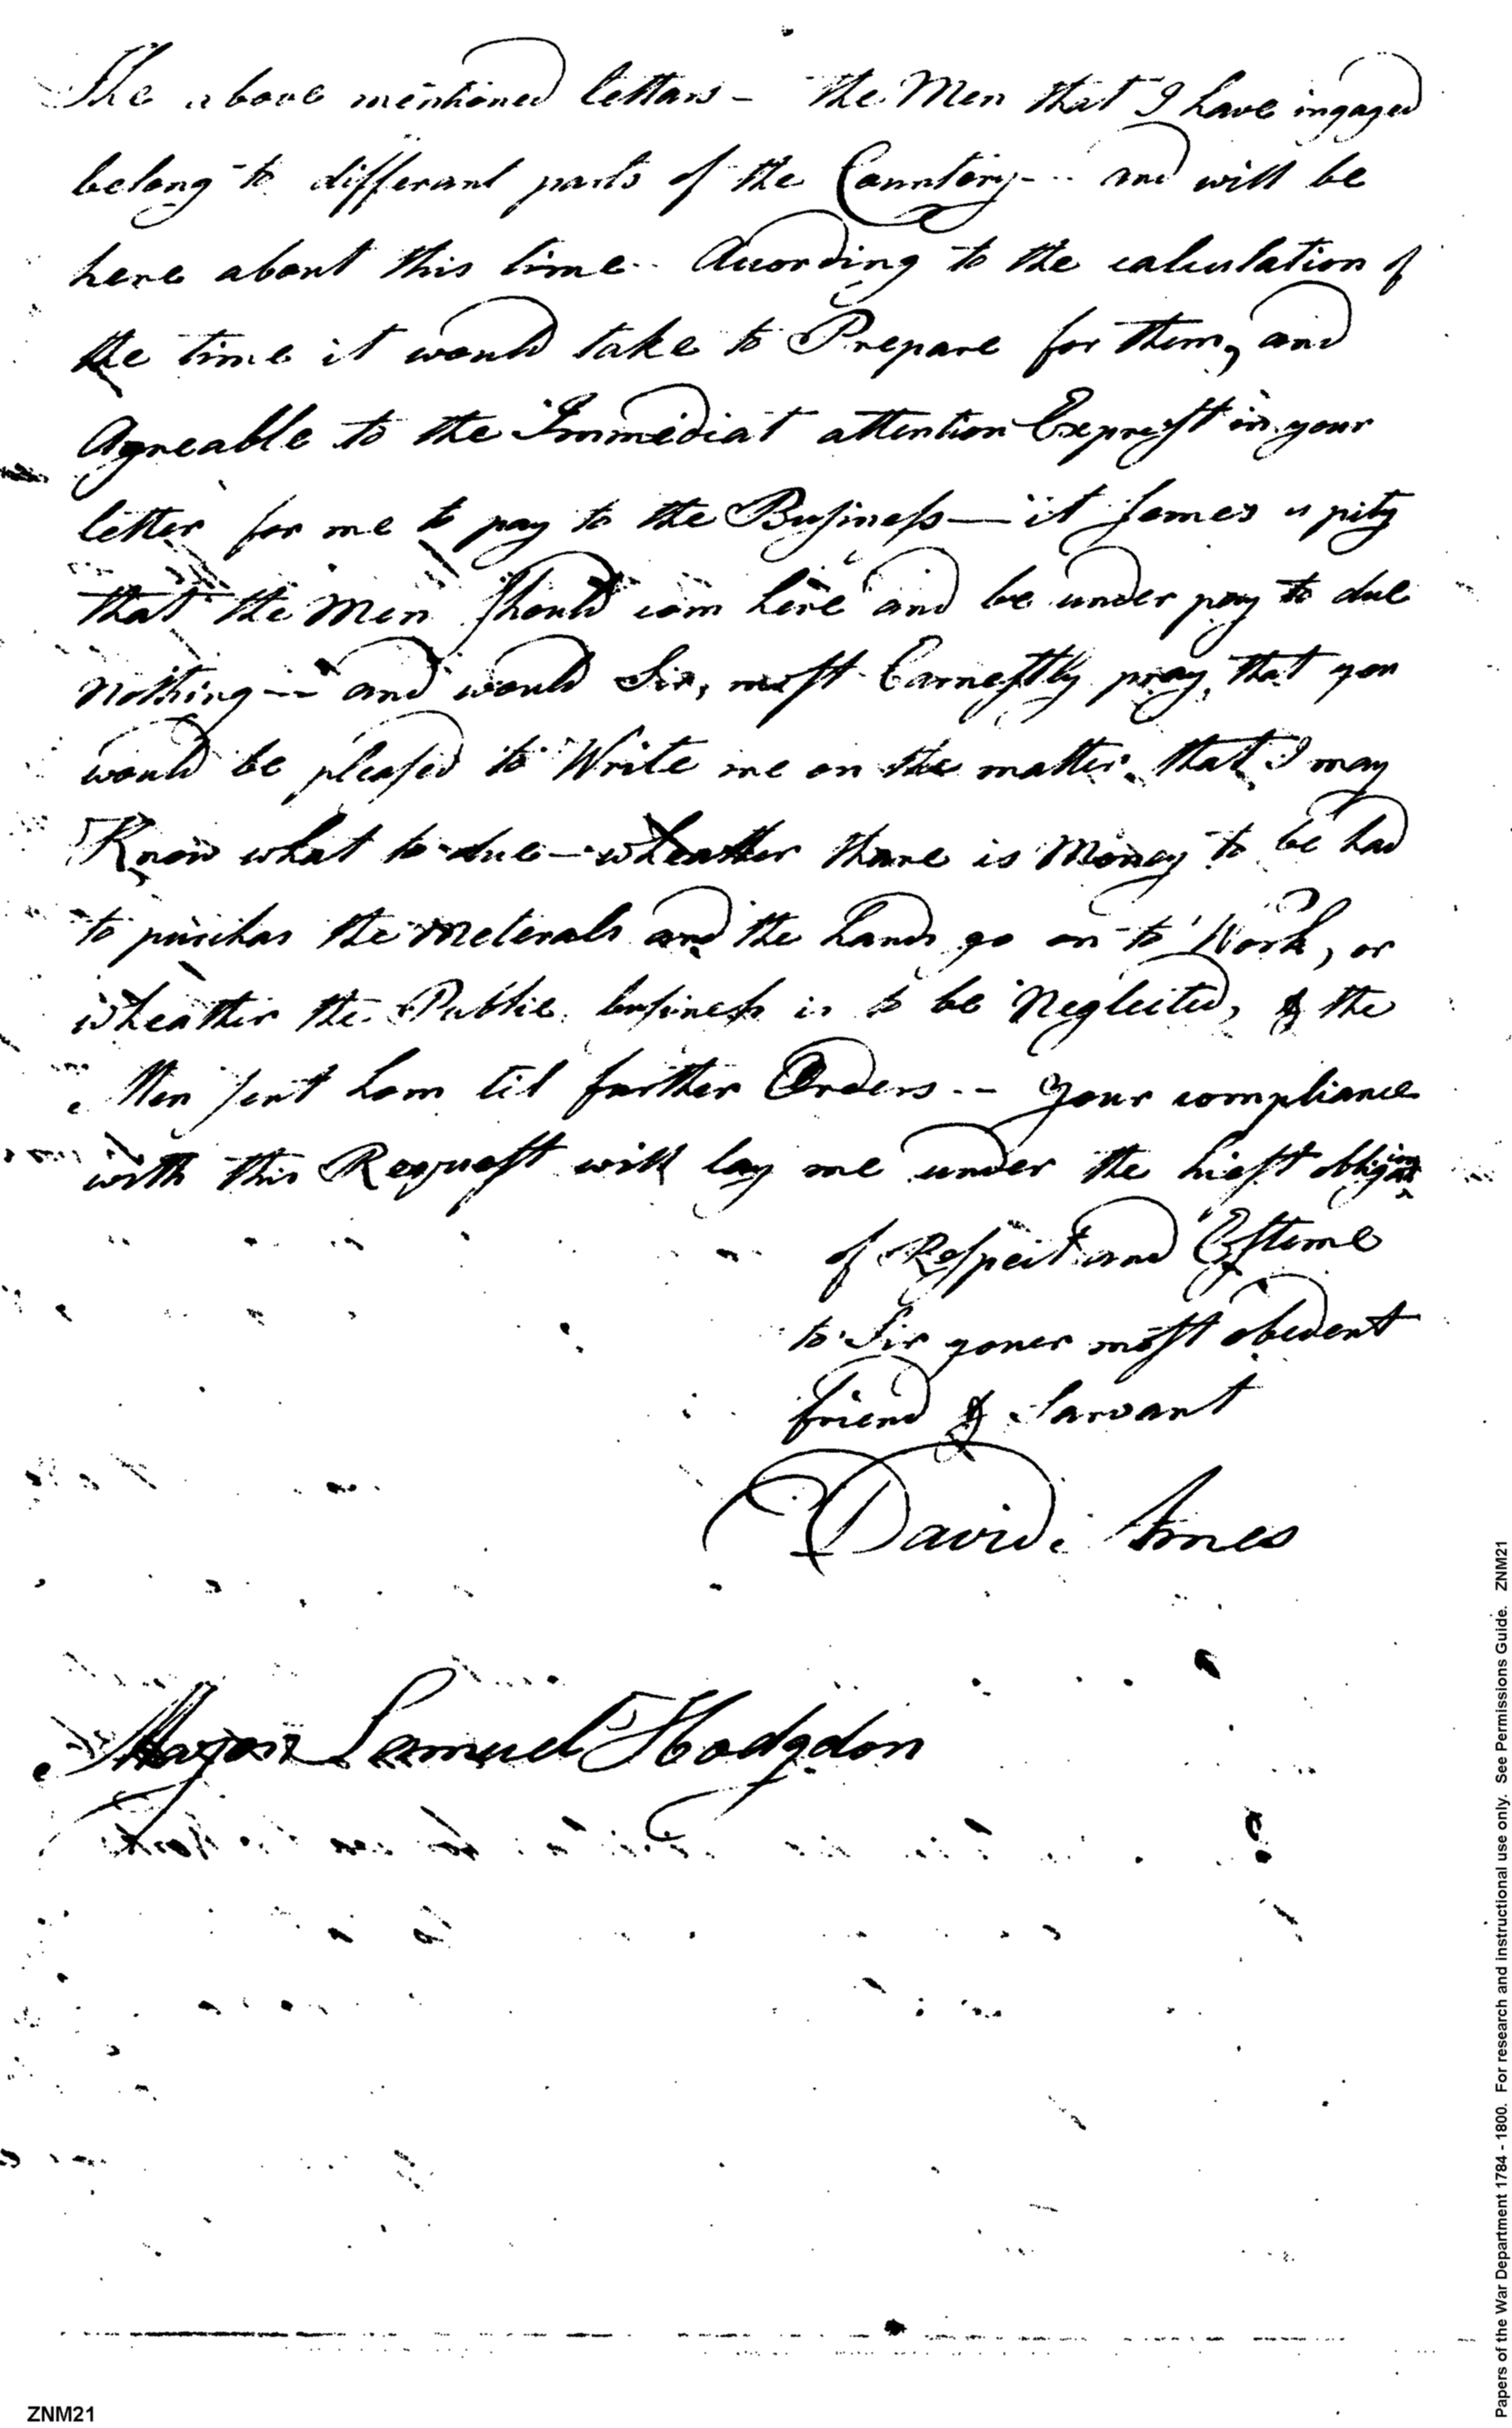 The above mentioned lettars – the Men that I have ingaged
belong to differant parts of the Countery – and will be
here about this time – Acording to the calculation of
the time it would take to Prepare for them, and
Agreable to the Immediat attention Exprest in your
letter for me to pay to the Business — it semes a pity
that the Men Should com here and be under pay to due
nothing — and would Sir, most Earnestly pray, that you
would be pleased to Write me on the matter, that I may
Know what to due – wheather thare is Money to be had
to purchas the meterals and the hands go on to Work, or
wheather the Public business is to be Neglected, & the
Men sent hom til further Orders – – your compliance
with this Request will lay me under the hiest obligation
of Respect and Esteme
to Sir youer most obedent
friend & Sarvant
David Ames
Major Samuel Hodgdon
ZNM21
Papers of the War Department 1784 - 1800. For research and instructional use only. See Permissions Guide. ZNM21